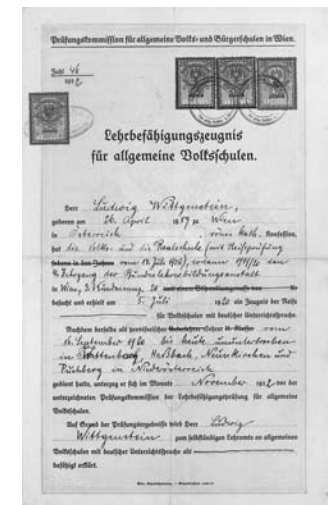 Prüfungskommission für allgemeine Volks- und Bürgerschulen in Wien.
Zahl 46
1922
Lehrbefähigungszeugnis
für allgemeine Volksschulen.
Herr Ludwig Wittgenstein,
geboren am 26. April 1889 zu Wien
in Österreich, röm. kath. Konfession,
hat die Volks- und die Realschule (mit Reifeprüfung
vom Juli sodann 1919/20 den
4. Jahrgang der Bundeslehrerbildungsanstalt
in Wien, 3. Kundmanng. 20
besucht und erhielt am 5. Juli 1920 ein Zeugnis der Reife
für Volksschulen mit deutscher Unterrichtssprache.
Nachdem derselbe als provisorischer Lehrer vom
16. September 1920 bis heute ununterbrochen
in Trattenbach, Haßbach, Neunkirchen und
Puchberg in Niederösterreich
gedient hatte, unterzog er sich im Monate November 1922 vor der
unterzeichneten Prüfungskommission der Lehrbefähigungsprüfung für allgemeine
Volksschulen.
Auf Grund der Prüfungsergebnisse wird Herr Ludwig
Wittgenstein zum selbständigen Lehramte an allgemeinen
Volksschulen mit deutscher Unterrichtssprache als
befähigt erklärt.